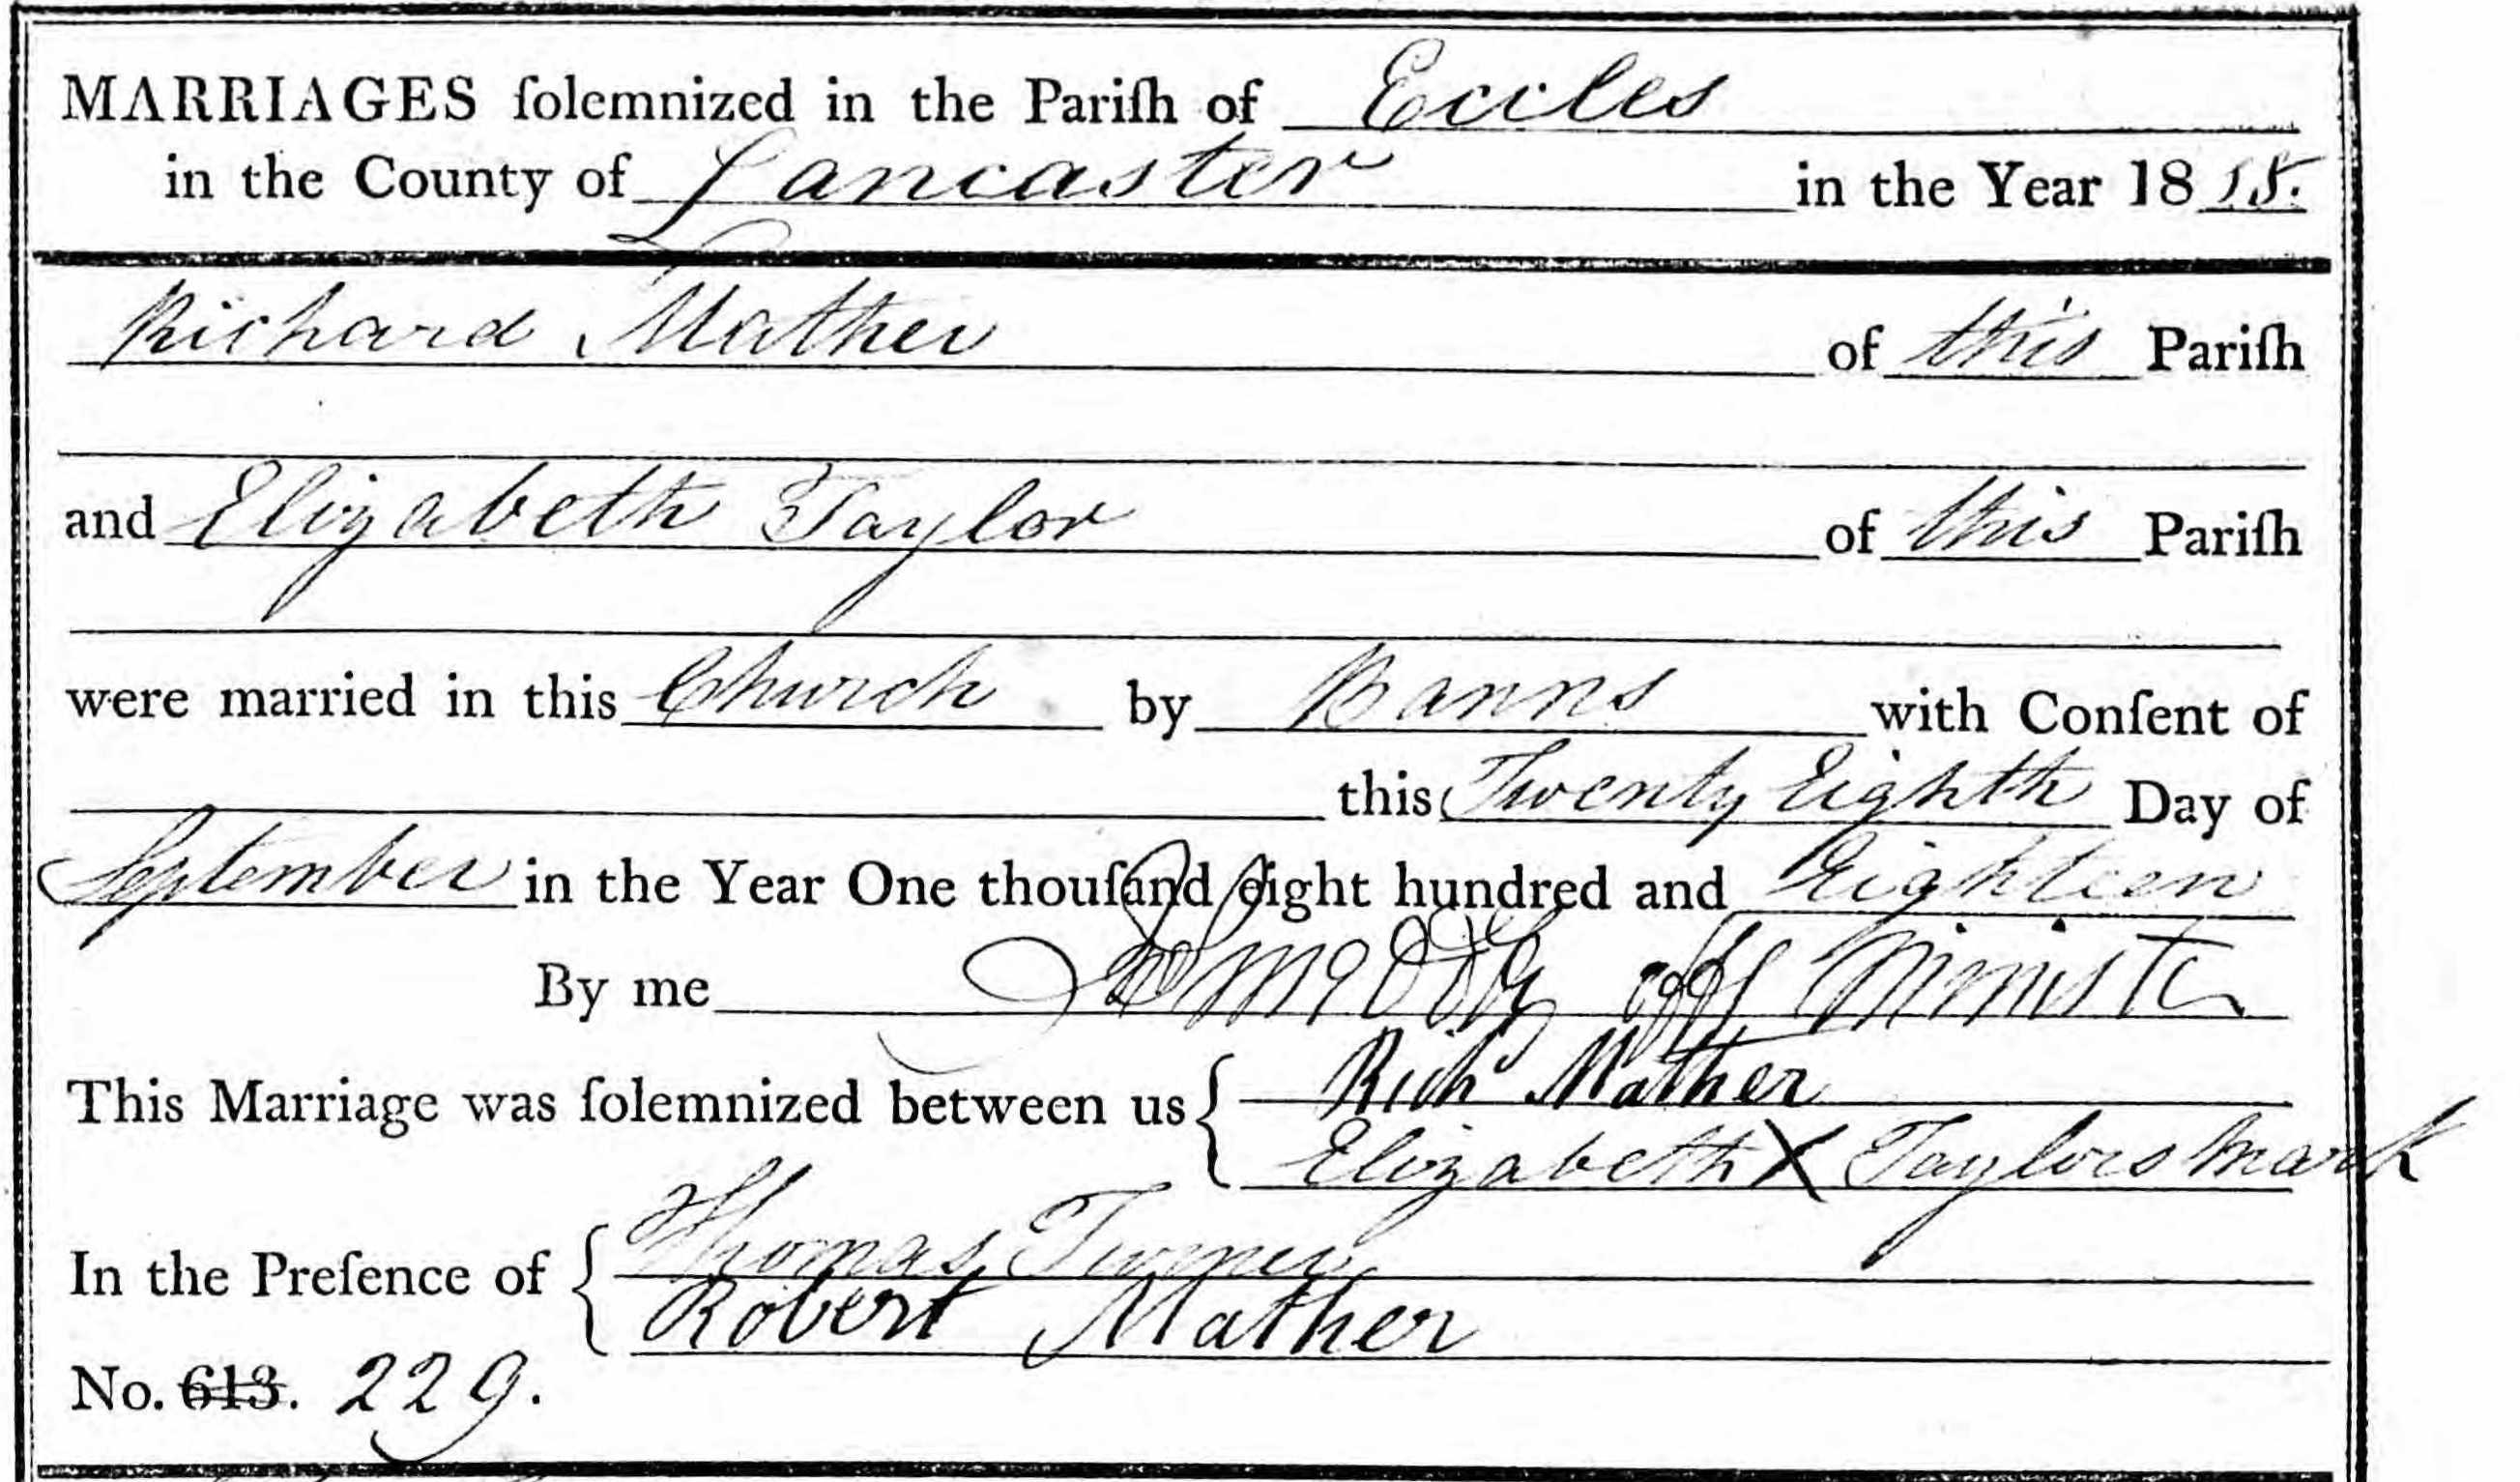 MARRIAGES ſolemnized in the Pariſh of Eccles
in the County of Lancaster in the Year 1818.
Richard Mather of this Pariſh
and Elizabeth Taylor of this Pariſh
were married in this Church by Banns with Conſent of
this Twenty Eighth Day of
September in the Year One thouſand eight hundred and Eighteen
By me offg Ministr
This Marriage was ſolemnized between us { Richd Mather
Elizabeth X Taylors mark
In the Preſence of { Thomas Turner
Robert Mather
No. 613. 229.